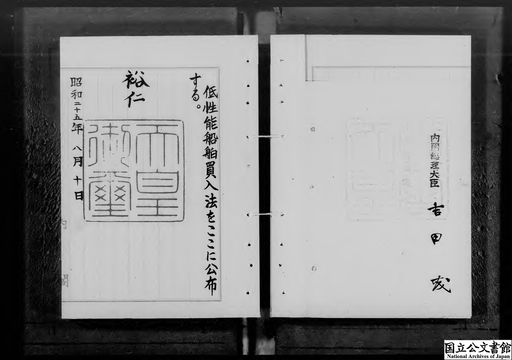 低性能船舶買入法をここに公布
する。
裕仁
天皇
御璽
昭和二十五年八月十日
内閣総理大臣 吉田茂
国立公文書館
National Archives of Japan